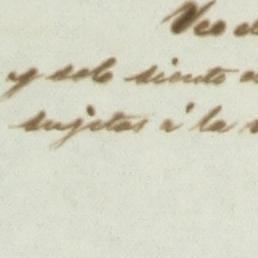 Veo
y solo siento
sujetas á la